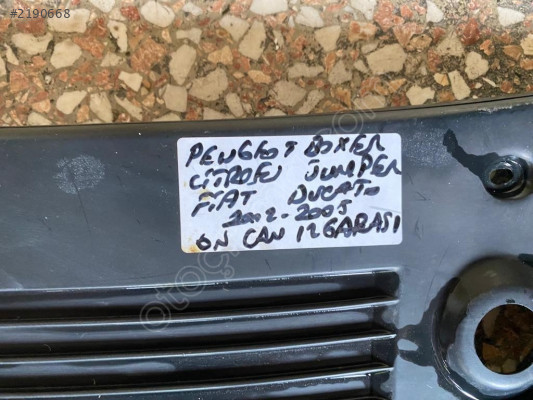 #2190668
PEUGEOT BOXER
CİTROEN JUMPER
FİAT DUCATO
2002-2005
ÖN CAM IZGARASI